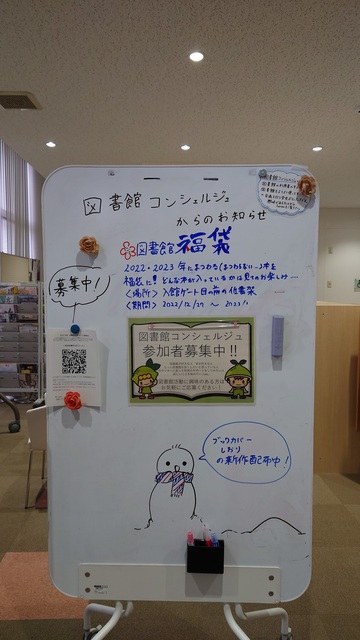 図書館コンシェルジュ
からのお知らせ
図書館福袋
2022・2023年にまつわる(まつわらない…)本を
福袋に!どんな本が入っているかは見てのお楽しみ…
<場所> 入館ゲート目の前の低書架
<期間> 2022/12/27 ～ 2023/
募集中!
図書館コンシェルジュ
参加者募集中!!
図書館活動に興味のある方は
お気軽にご応募ください!
ブックカバー
しおり
の新作配布中!